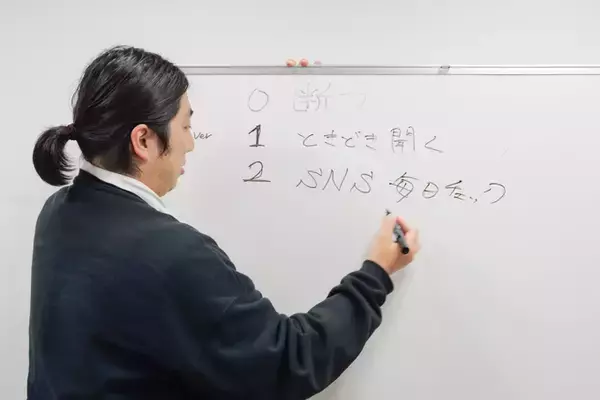 0 断つ
ver
1 ときどき開く
2 SNS 毎日だっつ